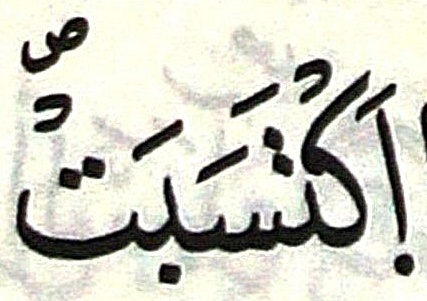 اَ۪كْتَسَبَتْۖ